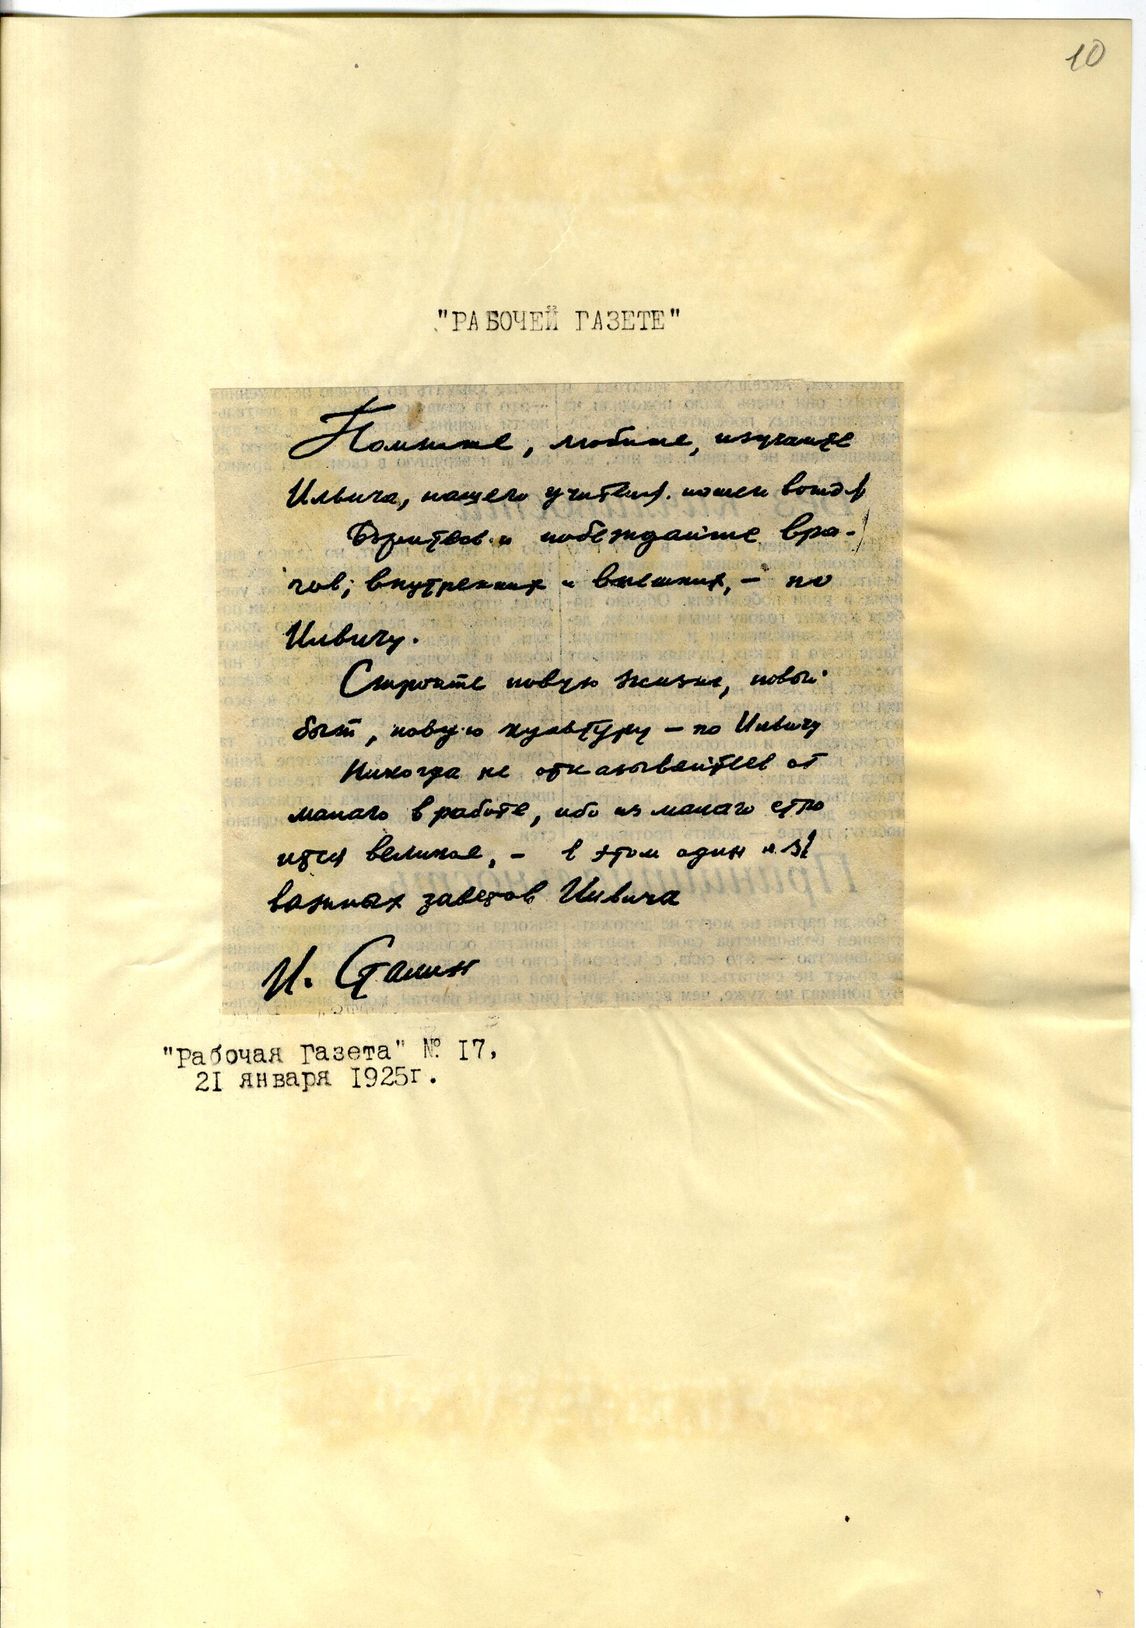 10
"РАБОЧЕЙ ГАЗЕТЕ"
Помните, любите, изучайте
Ильича, нашего учителя, нашего вождя
Боритесь и побеждайте вра-
гов, внутренних и внешних, — по
Ильичу.
Стройте новую жизнь, новый
быт, новую культуру — по Ильичу
Никогда не отказывайтесь от
малого в работе, ибо из малого стро
ится великое, — в этом один из
важных заветов Ильича
И. Сталин
"Рабочая Газета" № 17,
21 января 1925г.